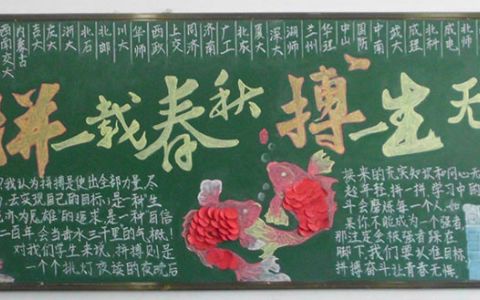 西南交大
内蒙古
吉大
龙大
浙大
北石
北邮
川大
华师
西政
上交
同济
济南
广工
北农
厦大
深大
湖师
兰州
华理
中山
国防
中南
武大
成理
北科
成电
北师
拼一载春秋 搏一生无
我认为拼搏是使出全部力量尽
去实现自己的目标,是一种生
亦为尾雄的追求,是一种自信
二百年会当击水三千里的气概!
对我们学生来说,拼搏则是
一个个挑灯夜读的夜晚后
换来的充实知识和同心无
趁年轻拼一拼,学习中的
斗会磨练每一个人,如
果你不能成为一个强者,
那注定会被强者踩在
脚下,我们要认准目标,
拼搏奋斗让青春无悔